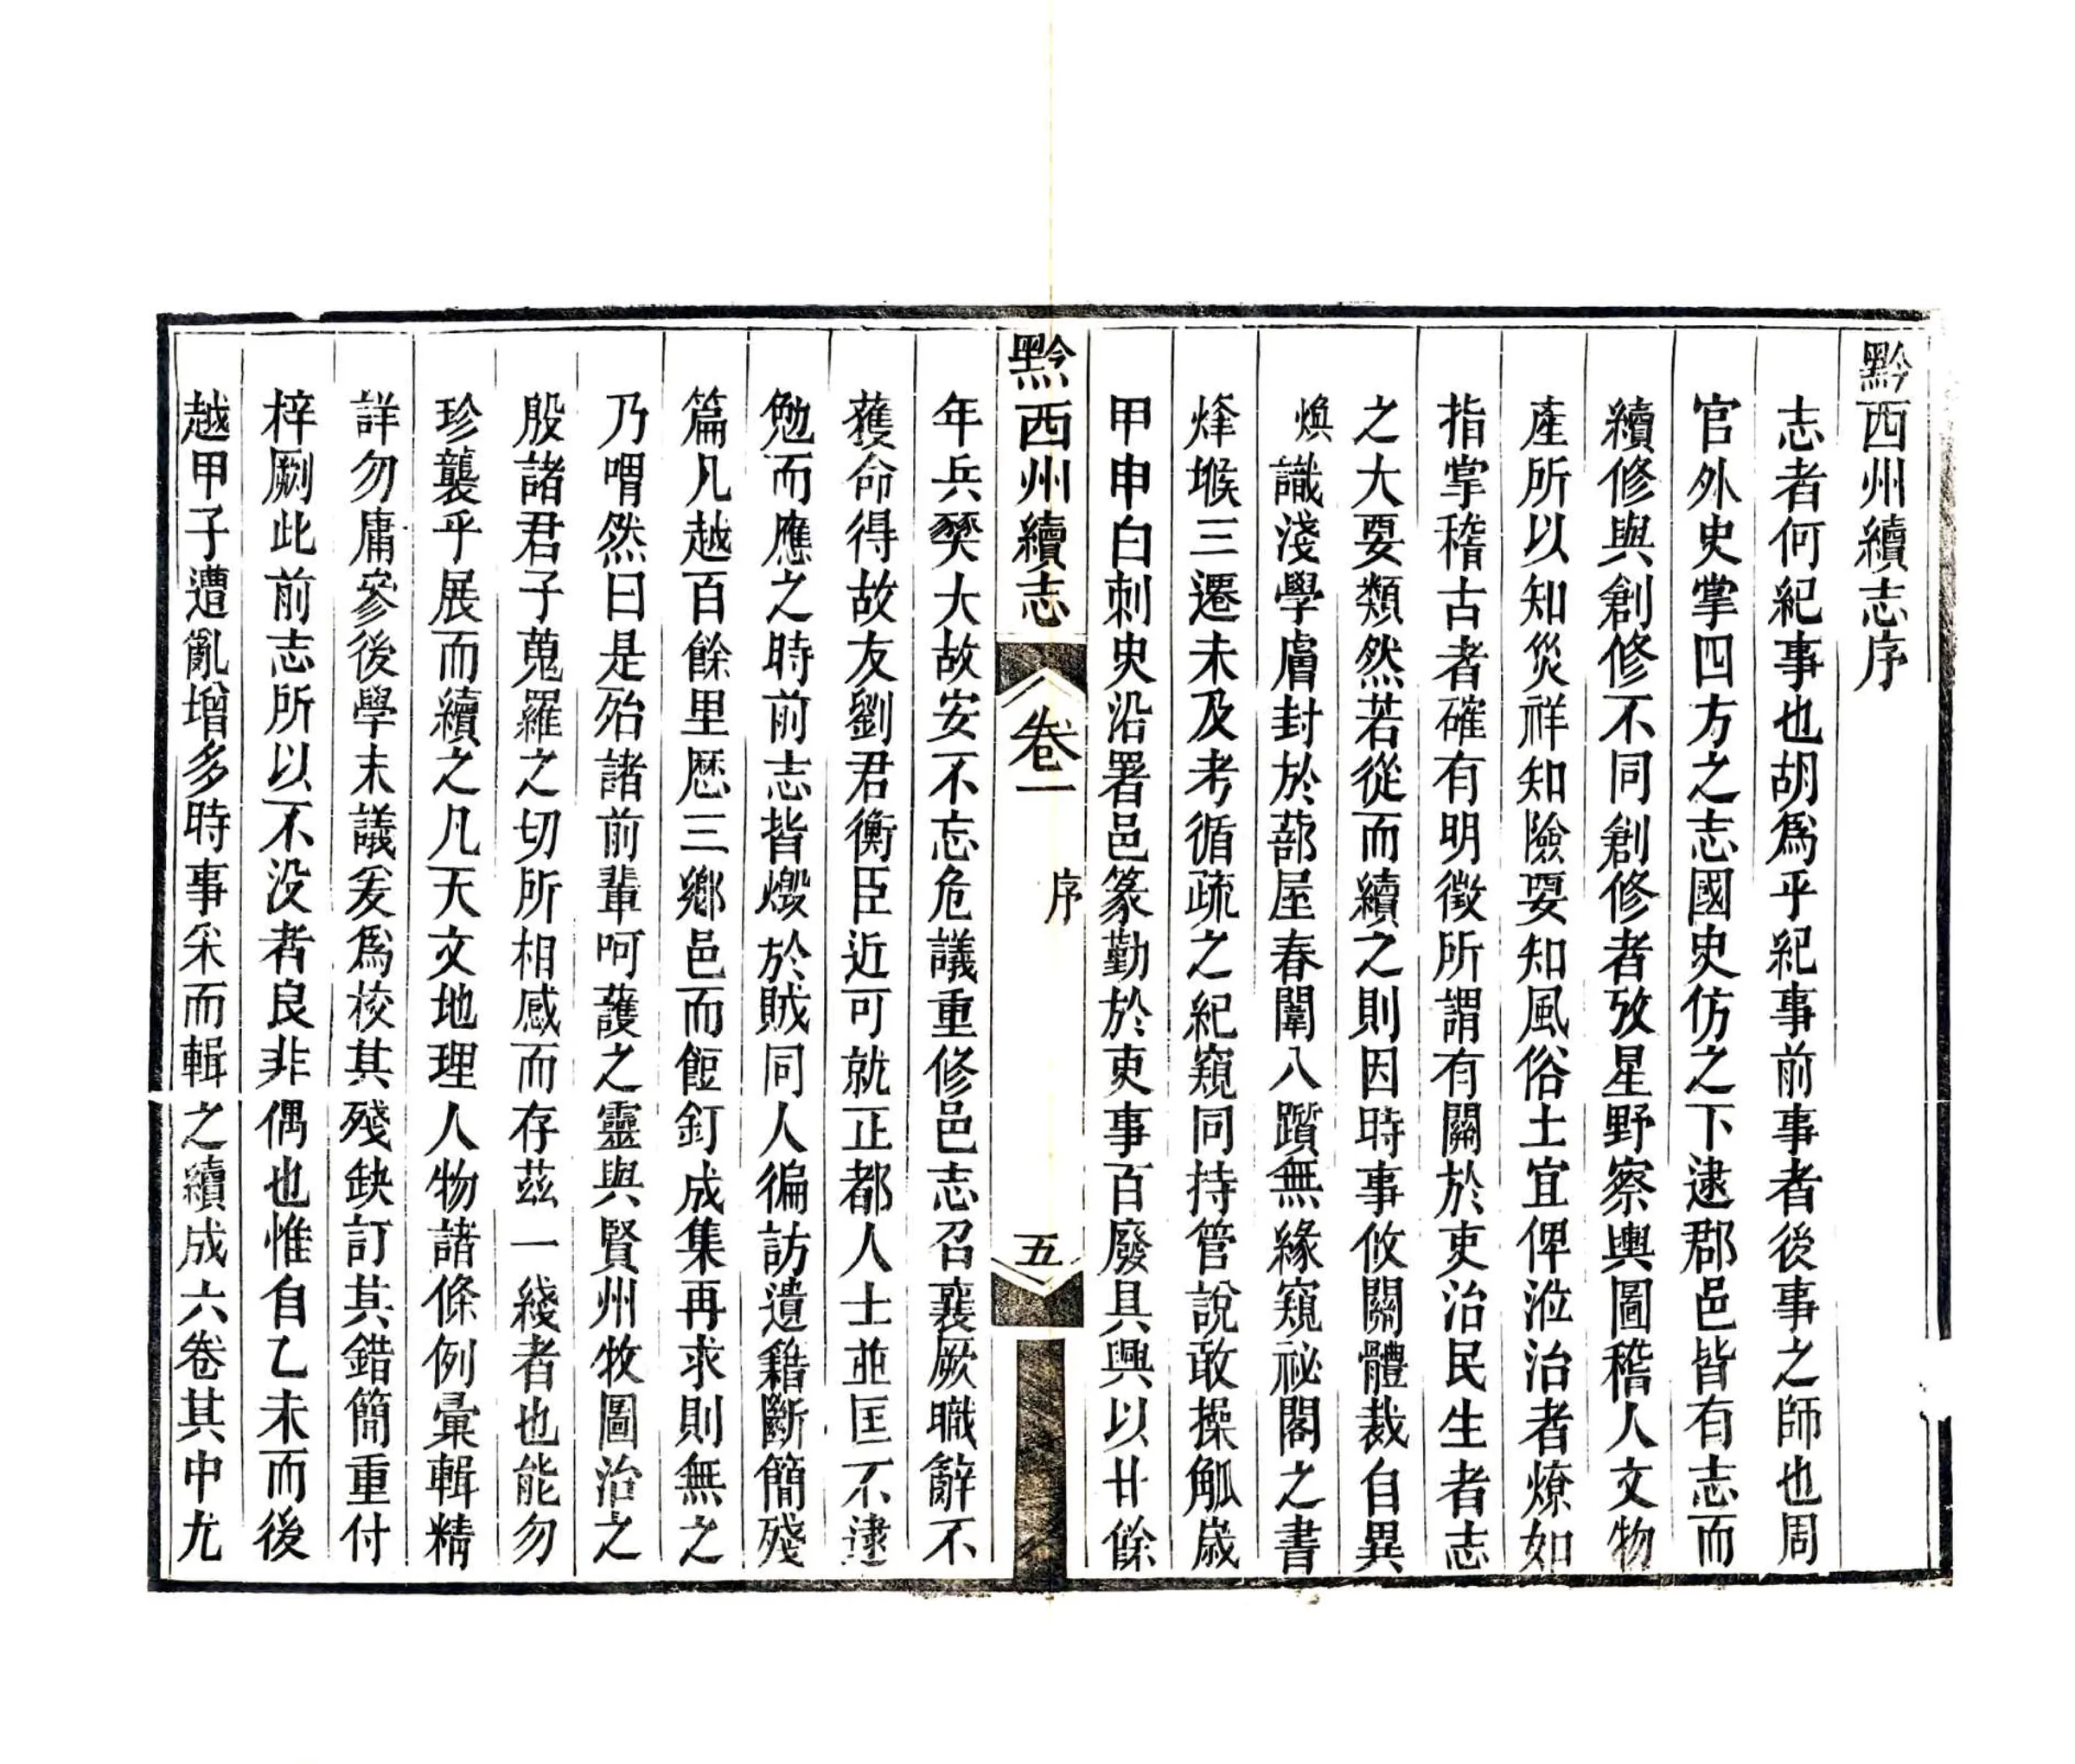 黔西州續志序
志者何紀事也胡爲乎紀事前事者後事之師也周
官外史掌四方之志國史仿之下逮郡邑皆有志而
續修與創修不同創修者攷星野察輿圖稽人文物
產所以知災祥知險要知風俗土宜俾涖治者燎如
指掌稽古者確有明徵所謂有關於吏治民生者志
之大要類然若從而續之則因時事攸關體裁自異
煥識淺學膚封於蔀屋春闈八躓無緣窺祕閣之書
烽堠三遷未及考循疏之紀窺同持管說敢操觚歲
甲申白刺史沿署邑篆勤於吏事百廢具興以廿餘
黔西州續志
卷一
序
五
年兵燹大故安不忘危議重修邑志召襄厥職辭不
獲命得故友劉君衡臣近可就正都人士並匡不逮
勉而應之時前志皆燬於賊同人徧訪遺籍斷簡殘
篇凡越百餘里歷三鄉邑而餖飣成集再求則無之
乃喟然曰是殆諸前輩呵護之靈與賢州牧圖治之
殷諸君子蒐羅之切所相感而存茲一綫者也能勿
珍襲乎展而續之凡天文地理人物諸條例彙輯精
詳勿庸參後學末議爰爲校其殘缺訂其錯簡重付
梓劂此前志所以不没者良非偶也惟自乙未而後
越甲子遭亂增多時事采而輯之續成六卷其中尤